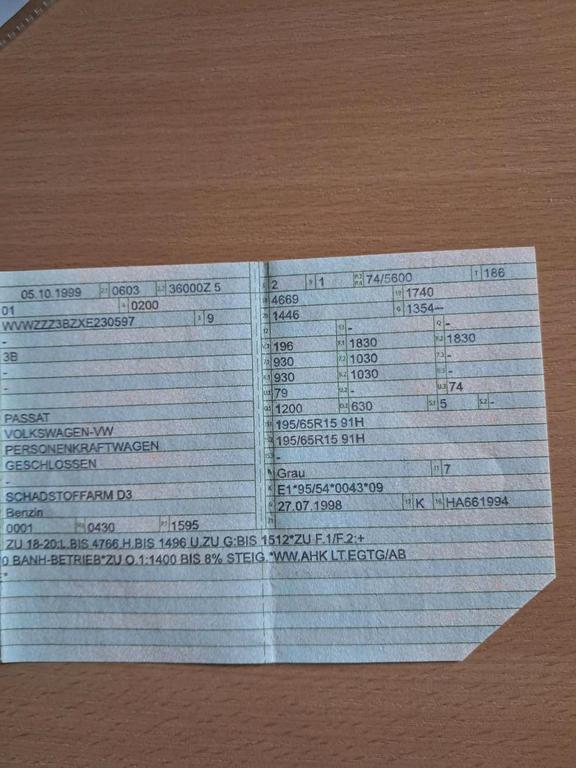 05.10.1999 0603 36000Z 5
01 0200
WVWZZZ3BZXE230597 9
-
3B
-
-
-
PASSAT
VOLKSWAGEN-VW
PERSONENKRAFTWAGEN
GESCHLOSSEN
-
SCHADSTOFFARM D3
Benzin
0001 0430 1595
2 1 74/5600 186
4669 1740
1446 1354--
- -
196 1830 1830
930 1030 -
930 1030 -
79 - 74
1200 630 5 -
195/65R15 91H
195/65R15 91H
-
Grau 7
E1*95/54*0043*09
27.07.1998 K HA661994
ZU 18-20:L.BIS 4766,H.BIS 1496 U.ZU G:BIS 1512*ZU F.1/F.2:+
0 BANH-BETRIEB*ZU O.1:1400 BIS 8% STEIG.*WW.AHK LT.EGTG/AB
*